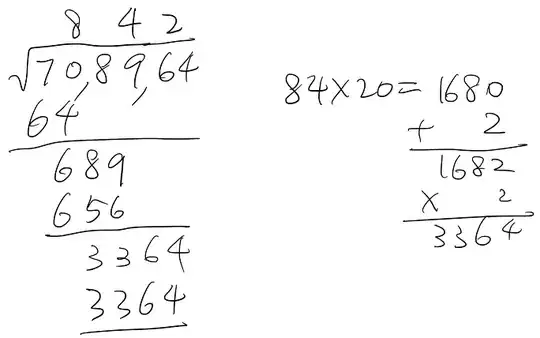 8 4 2
√70,89,64
64
689
656
3364
3364
84×20=1680
+ 2
1682
× 2
3364